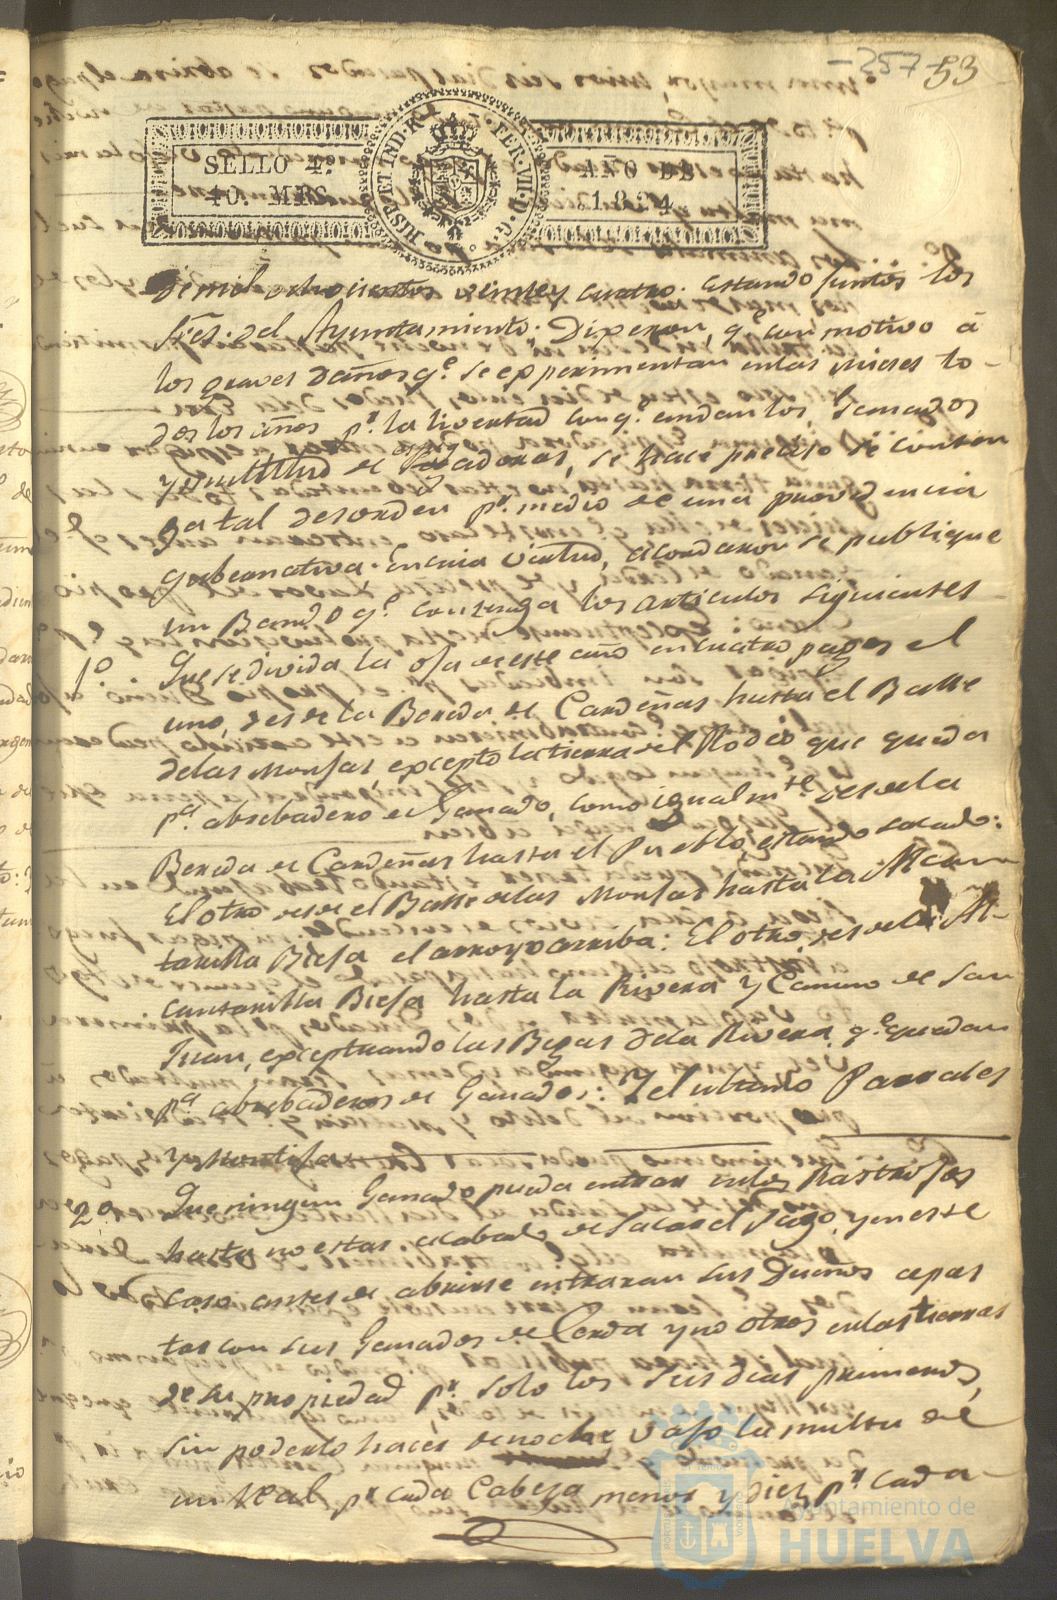 -257- 53
SELLO 4º AÑO DE
40. MRS. 1824.
HISP. ET IND. R. FER. VII. D. G.
de mil ochocientos veinte y cuatro. estando juntos los
Sres. del Ayuntamiento; Dixeron, qe. con motivo á
los graves daños qe. se experimentan en las mieses to-
dos los años pr. la livertad con qe. andan los Ganados
y multitud de espigadoras, se hace preciso se conten
ga tal desorden pr. medio de una providencia
gubernativa. En cuia virtud, acordaron se publique
un Bando qe. contenga los articulos siguientes
1º. Que se divida la oja de este año en cuatro pagos el
uno, desde la Bereda de Cardeñas hasta el Balle
delas Monjas excepto la tierra del Rodeo que queda
pa. abrebadero de Ganado, como igualmte. desde la
Bereda de Cardeñas hasta el Pueblo, estando sacado:
El otro desde el Balle delas Monjas hasta la Alcan
tarilla Bieja el arroyo arriba: El otro, desde la Al-
cantarilla Bieja hasta la Rivera y Camino de San
Juan, exceptuando las Begas dela Rivera, qe. quedan
pa. abrebaderos de Ganados: Y el ultimo Parrales
y Montija
2º. Que ningun Ganado pueda entrar en los Rastrojos
hasta no estar acabado de sacar el Pago, y en este
caso antes de abrirse entraran sus Dueños apas
tar con sus Ganados de Cerda y no otros en las tierras
de su propiedad pr. solo los seis dias primeros,
sin poderlo hacer de noche, vajo la multa de
un real pr. cada Cabeza menor y diez pr. cada
Ayuntamiento de
HUELVA